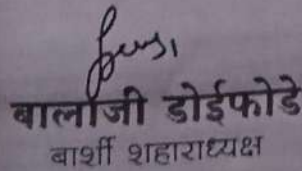 बालाजी डोईफोडे
बार्शी शहाराध्यक्ष